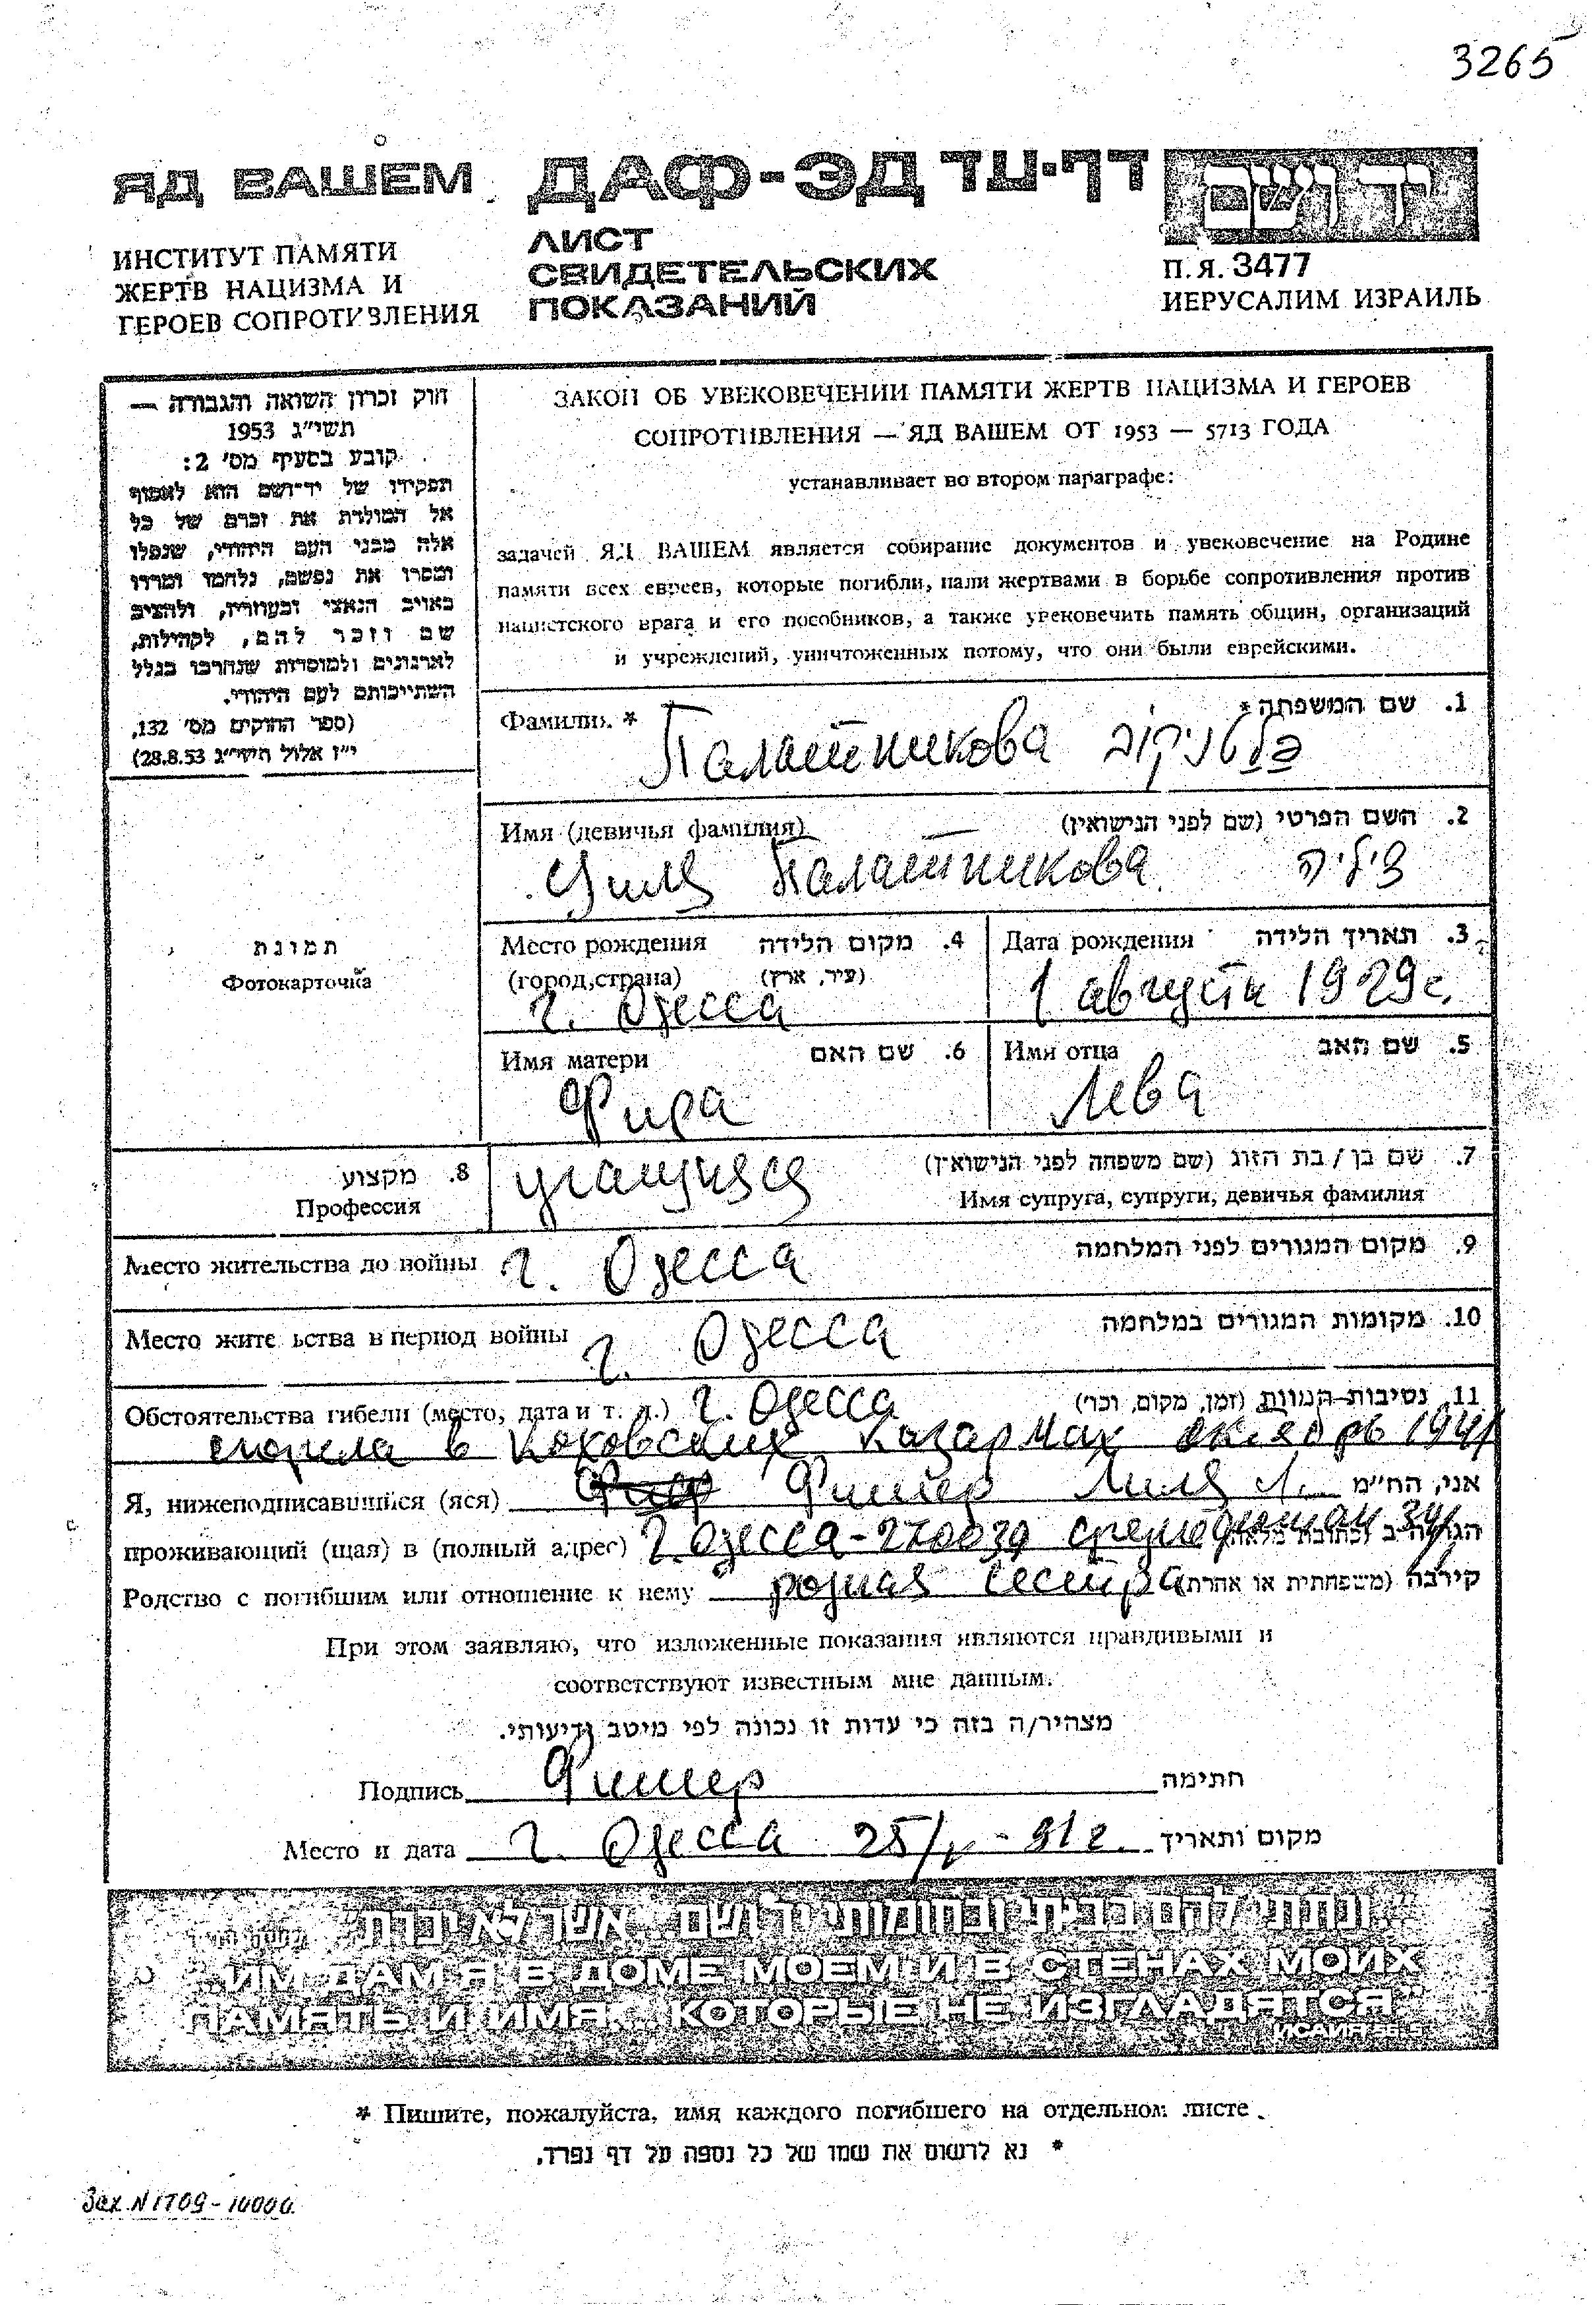 3265
ЯД ВАШЕМ ДАФ-ЭД דף-עד יד ושם
ИНСТИТУТ ПАМЯТИ
ЖЕРТВ НАЦИЗМА И
ГЕРОЕВ СОПРОТИВЛЕНИЯ
ЛИСТ
СВИДЕТЕЛЬСКИХ
ПОКАЗАНИЙ
П.Я. 3477
ИЕРУСАЛИМ ИЗРАИЛЬ
חוק זכרון השואה והגבורה —
תשי״ג 1953
קובע בסעיף מס׳ 2:
תפקידו של יד־ושם הוא לאסוף
אל המולדת את זכרם של כל
אלה מבני העם היהודי, שנפלו
ומסרו את נפשם, נלחמו ומרדו
באויב הנאצי ובעוזריו, ולהציב
שם וזכר להם, לקהילות,
לארגונים ולמוסדות שנחרבו בגלל
השתייכותם לעם היהודי.
(ספר החוקים מס׳ 132,
י״ז אלול תשי״ג 28.8.53)
ЗАКОН ОБ УВЕКОВЕЧЕНИИ ПАМЯТИ ЖЕРТВ НАЦИЗМА И ГЕРОЕВ
СОПРОТИВЛЕНИЯ — ЯД ВАШЕМ ОТ 1953 — 5713 ГОДА
устанавливает во втором параграфе:
задачей ЯД ВАШЕМ является собирание документов и увековечение на Родине
памяти всех евреев, которые погибли, пали жертвами в борьбе сопротивления против
нацистского врага и его пособников, а также увековечить память общин, организаций
и учреждений, уничтоженных потому, что они были еврейскими.
Фамилия * 1. שם המשפחה *
Палатникова פלטניקוב
Имя (девичья фамилия) 2. השם הפרטי (שם לפני הנישואין)
Циля Палатникова ציליה
תמונת
Фотокарточка
Место рождения 4. מקום הלידה
(город,страна) (עיר, ארץ)
г. Одесса
Дата рождения 3. תאריך הלידה
1 августа 1929г.
Имя матери 6. שם האם
Фира
Имя отца 5. שם האב
Лева
8. מקצוע
Профессия
учащияся
7. שם בן / בת הזוג (שם משפחה לפני הנישואין)
Имя супруга, супруги, девичья фамилия
Место жительства до войны г. Одесса 9. מקום המגורים לפני המלחמה
Место жите ьства в период войны г. Одесса 10. מקומות המגורים במלחמה
Обстоятельства гибели (место, дата и т. д.) г. Одесса 11. נסיבות המוות (זמן, מקום, וכו׳)
сгорела в казармах октябрь 1941
Я, нижеподписавшийся (яся) Фишер Лиля Л. אני, הח״מ
проживающий (щая) в (полный адрес) г. Одесса-270039
Родство с погибшим или отношение к нему родная сестра קירבה (משפחתית או אחרת)
При этом заявляю, что изложенные показания являются правдивыми и
соответствуют известным мне данным.
מצהיר/ה בזה כי עדות זו נכונה לפי מיטב ידיעותי.
Подпись Фишер חתימה
Место и дата г. Одесса 25/ - 91г. מקום ותאריך
״...ונתתי להם בביתי ובחומותי יד ושם... אשר לא יכרת״
"...ИМ ДАМ Я В ДОМЕ МОЕМ И В СТЕНАХ МОИХ
ПАМЯТЬ И ИМЯ... КОТОРЫЕ НЕ ИЗГЛАДЯТСЯ"
ИСАИЯ 56.5
* Пишите, пожалуйста, имя каждого погибшего на отдельном листе.
* נא לרשום את שמו של כל נספה על דף נפרד.
Зак N 1709-10000